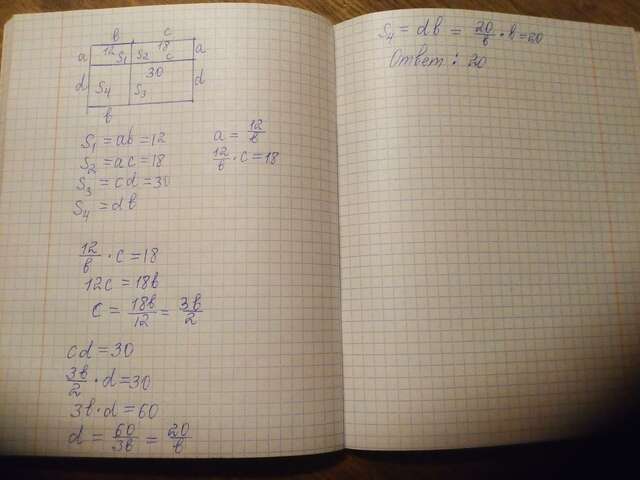 в c
a 12 S₁ S₂ 18 c a
d S₄ 30 S₃ d
в
S₁ = aв = 12
S₂ = ac = 18
S₃ = cd = 30
S₄ = dв
a = 12/в
12/в · c = 18
12/в · c = 18
12c = 18в
c = 18в/12 = 3в/2
cd = 30
3в/2 · d = 30
3в · d = 60
d = 60/3в = 20/в
S₄ = dв = 20/в · в = 20
Ответ: 20